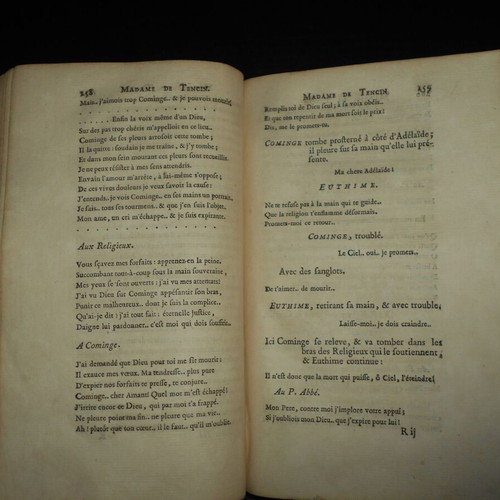 258 MADAME DE TENCIN.
Mais.. j'aimois trop Cominge.. & je pouvois mourir.
. . . . . . . . . . . . . . .
. . . . . . Enfin la voix même d'un Dieu,
Sur des pas trop chéris m'appelloit en ce lieu..
Cominge de ses pleurs arrosoit cette tombe ;
Il la quitte : soudain je me traîne, & j'y tombe ;
Et dans mon sein mourant ces pleurs sont recueillis.
Je ne peux résister à mes sens attendris.
Envain l'amour m'arrête, à lui-même s'oppose ;
De ces vives douleurs je veux savoir la cause :
J'entends.. je vois Cominge.. en ses mains un portrait.
Je sais.. tous ses tourmens.. & que j'en suis l'objet.
Mon ame, un cri m'échappe.. & je suis expirante.
. . . . . . . . . . . . . . .
Aux Religieux.
Vous sçavez mes forfaits : apprenez-en la peine.
Succombant tout-à-coup sous la main souveraine,
Mes yeux se sont ouverts : j'ai vu mes attentats!
J'ai vu Dieu sur Cominge appésantir son bras,
Punir ce malheureux.. dont je suis la complice..
Qu'ai-je dit : j'ai tout fait : éternelle Justice,
Daigne lui pardonner.. c'est moi qui dois souffrir.
A Cominge.
J'ai demandé que Dieu pour toi me fît mourir :
Il exauce mes vœux. Ma tendresse.. plus pure
D'expier nos forfaits te presse, te conjure..
Cominge.. cher Amant! Quel mot m'est échappé!
J'irrite encor ce Dieu, qui par moi t'a frappé.
Ne pleure point ma fin.. ne pleure que ma vie..
Ah ! plutôt que ton cœur.. il le faut.. qu'il m'oublie.
MADAME DE TENCIN. 259
Remplis-toi de Dieu seul ; à sa voix obéis..
Et que ton repentir de ma mort soit le prix :
Dis, me le promets-tu.
COMINGE tombe prosterné à côté d'Adélaïde ;
il pleure sur sa main qu'elle lui présente.
Ma chere Adélaïde !
EUTHIME.
Ne te refuse pas à la main qui te guide..
Que la religion t'enflamme désormais.
Promets-moi ce retour..
COMINGE, troublé.
Le Ciel.. oui.. je promets..
Avec des sanglots.
De t'aimer.. de mourir.
EUTHIME, retirant sa main, & avec trouble.
Laisse-moi.. je dois craindre.
Ici Cominge se releve, & va tomber dans les
bras des Religieux qui le soutiennent,
& Euthime continue :
Il n'est donc que la mort qui puisse, ô Ciel, l'éteindre!
Au P. Abbé.
Mon Pere, contre moi j'implore votre appui ;
Si j'oubliois mon Dieu.. que j'expire pour lui !
R ij